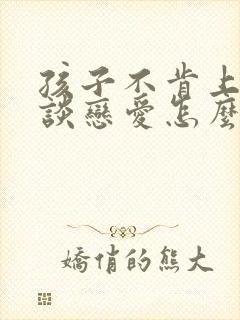 孩子不肯上
談戀愛怎麼
嬌俏的熊大